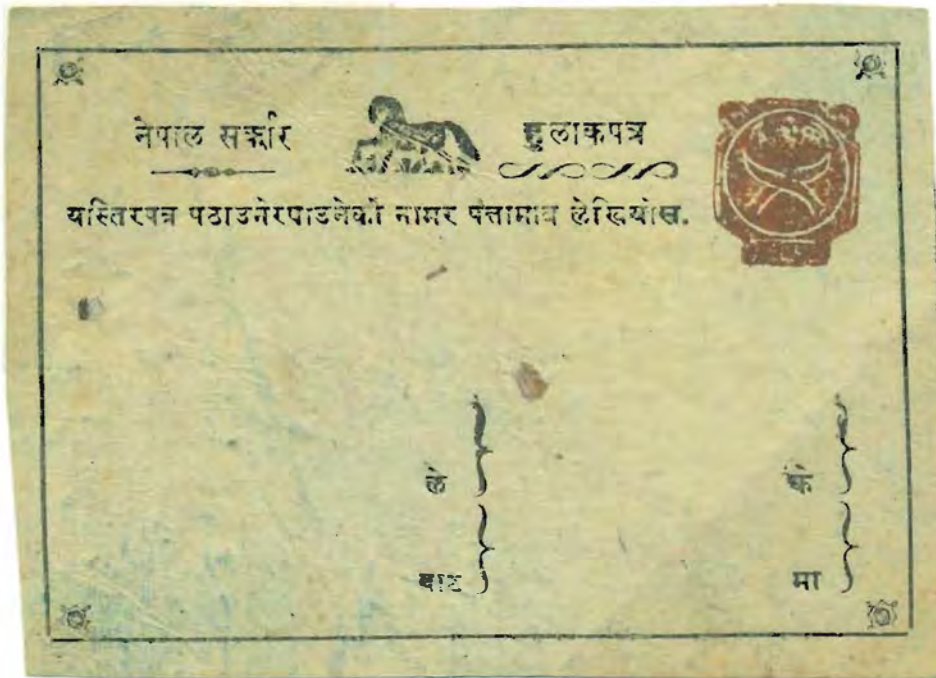 नेपाल सर्कारि हुलाकपत्र
यस्तिरपत्र पठाउनेरपाउनेको नामर पत्तामात्र लेखियोस.
ले के
बाट मा